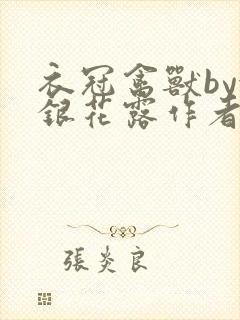 衣冠禽獸by
銀花露作者
張炎良